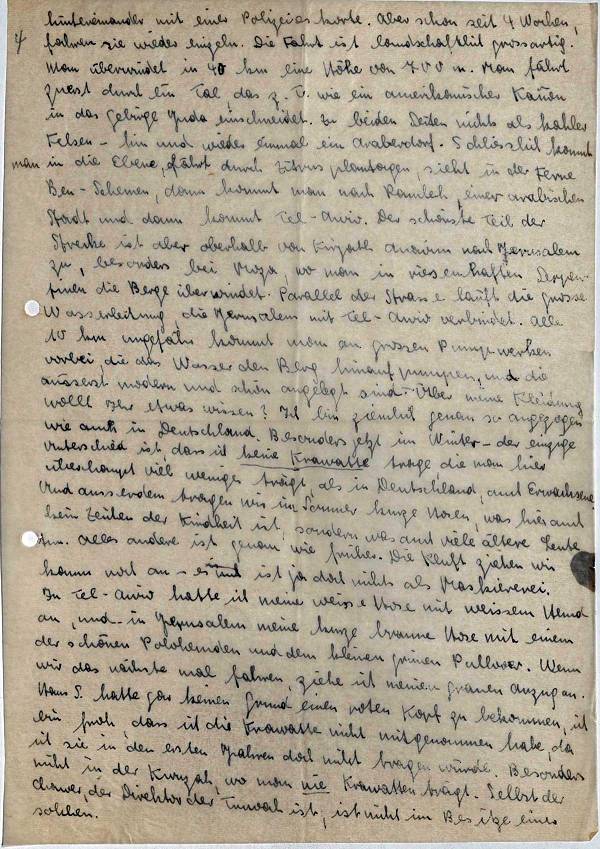 4
hintereinander mit einer Polizeieskorte. Aber schon seit 4 Wochen,
fahren sie wieder einzeln. Die Fahrt ist landschaftlich grossartig.
Man überwindet in 40 km eine Höhe von 700 m. Man fährt
zuerst durch ein Tal, das z. T. wie ein amerikanischer Kañon
in das Gebirge Juda einschneidet. Zu beiden Seiten nichts als kahler
Felsen - hin und wieder einmal ein Araberdorf. Schliesslich kommt
man in die Ebene, fährt durch Zitrusplantagen, sieht in der Ferne
Ben-Schemen, dann kommt man nach Ramleh, einer arabischen
Stadt und dann kommt Tel-Aviv. Der schönste Teil der
Strecke ist aber oberhalb von Kirjath Anavim nach Jerusalem
zu, besonders bei Moza, wo man in riesenhaften Serpen-
tinen die Berge überwindet. Parallel der Strasse läuft die grosse
Wasserleitung, die Jerusalem mit Tel-Aviv verbindet. Alle
10 km ungefähr kommt man an grossen Pumpwerken
vorbei, die das Wasser den Berg hinaufpumpen, und die
äusserst modern und schön angelegt sind. - Über meine Kleidung
wollt Ihr etwas wissen? Ich bin ziemlich genau so angezogen
wie auch in Deutschland. Besonders jetzt im Winter - der einzige
Unterschied ist, dass ich keine Krawatte trage die man hier
überhaupt viel weniger trägt, als in Deutschland, auch Erwachsene.
Und ausserdem tragen wir im Sommer kurze Hosen, was hier auch
kein Zeichen der Kindheit ist, sondern was auch viele ältere Leute
tun. Alles andere ist genau wie früher. Die Kluft ziehen wir
kaum noch an - es ist ja doch nichts als Maskiererei.
In Tel-Aviv hatte ich meine weisse Hose mit weissem Hemd
an, und in Jerusalem meine kurze braune Hose mit einem
der schönen Polohemden und dem kleinen grünen Pullover. Wenn
wir das nächste mal fahren, ziehe ich meinen grauen Anzug an.
Hans S. hatte gar keinen Grund einen roten Kopf zu bekommen, ich
bin froh, dass ich die Krawatte nicht mitgenommen habe, da
ich sie in den ersten Jahren doch nicht tragen würde. Besonders
nicht in der Kwuzah, wo man nie Krawatten trägt. Selbst der
der Direktor der ist, ist nicht im Besitze einer
solchen.